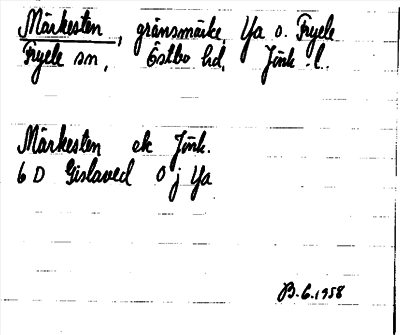 Märkesten, gränsmärke Ya o. Fryele
Fryele sn, Östbo hd, Jönk. l.
Märkesten ek Jönk.
6 D Gislaved 0 j Ya
B. 6. 1958